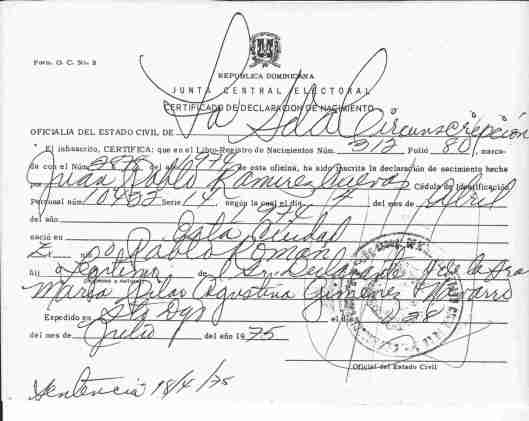 Form. O. C. No. 2
REPUBLICA DOMINICANA
JUNTA CENTRAL ELECTORAL
CERTIFICADO DE DECLARACION DE NACIMIENTO
OFICIALIA DEL ESTADO CIVIL DE La 2da Circunscripción
El infrascrito, CERTIFICA: que en el Libro-Registro de Nacimientos Núm. 312 Folio 80, marca-
da con el Núm. del 1974 de esta oficina, ha sido inscrita la declaración de nacimiento hecha
por Juan Pablo Ramirez Cuevas Cédula de Identificación
Personal núm. 10452 Serie 14, según la cual el día del mes de Abril
del año 1974
nació en esta ciudad
un niño Pablo Roman
hij o Legitimo de l Sr. Declarante y de la Sra
Maria Pilar Agustina Gimenes Navarro
Expedido en Sto Dgo el día 28
del mes de Julio del año 1975
Oficial del Estado Civil
Sentencia 18/4/75